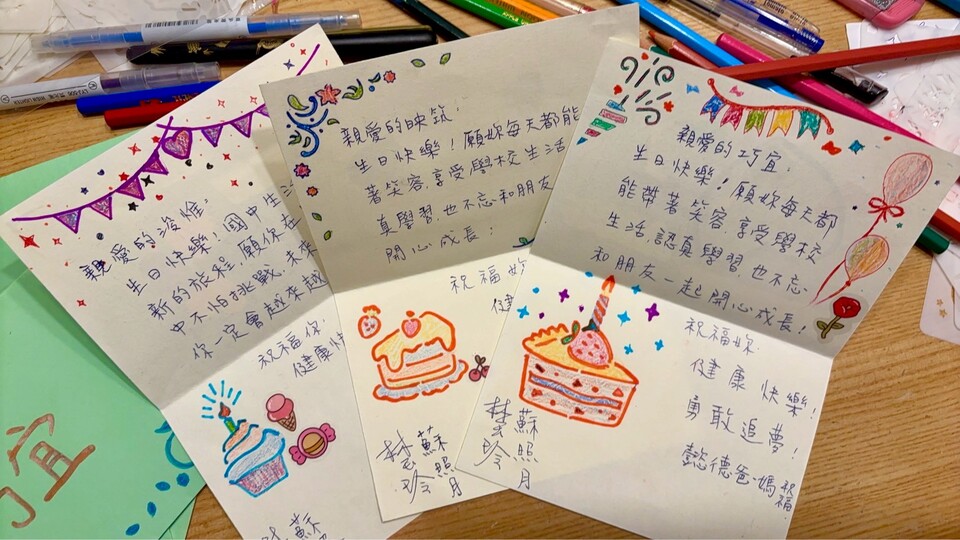 親愛的浚惟：
生日快樂！國中生
新的旅程，願你在
中不怕挑戰，未來
你一定會越來越
祝福你：
健康快
蘇
親愛的映筑：
生日快樂！願妳每天都能
著笑容，享受學校生活
真學習，也不忘和朋友
開心成長！
祝福妳
健
蘇照月
楚玲
親愛的巧宜，
生日快樂！願妳每天都
能帶著笑容享受學校
生活認真學習也不忘
和朋友一起開心成長！
祝福妳：
健康快樂！
勇敢追夢！
懿德爸媽祝福！
蘇照月
楚玲
宜